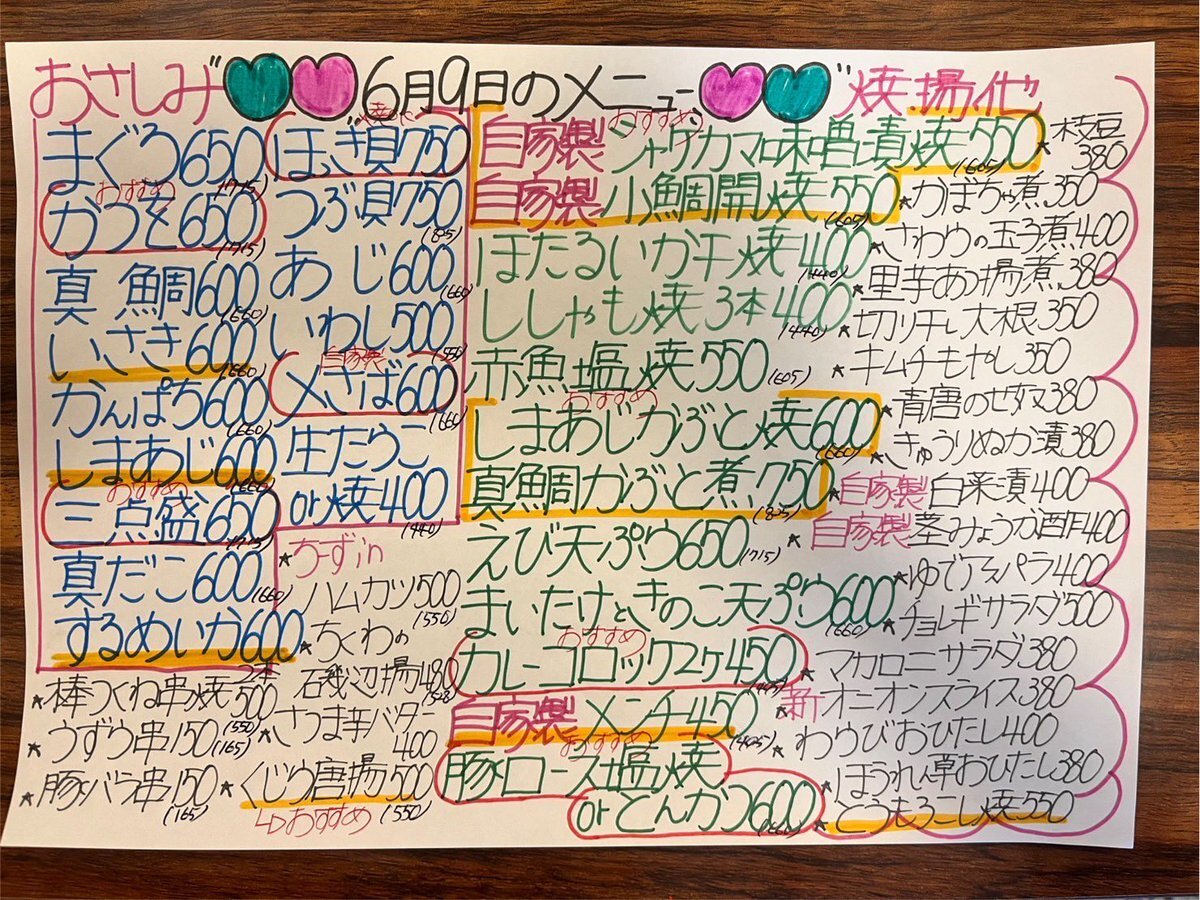 おさしみ 6月9日のメニュー 焼揚他
まぐろ650 (715)
おすすめ
かつを650 (715)
真鯛600 (660)
いさき600 (660)
かんぱち600 (660)
しまあじ600 (660)
おすすめ
三点盛650 (715)
真だこ600 (660)
するめいか600
ほっき貝750
つぶ貝750 (825)
あじ600 (660)
いわし500 (550)
自家製
〆さば600 (660)
生たらこ
or焼400 (440)
★ちーずin
ハムカツ500 (550)
★ちくわの
石磯辺揚480 (528)
★さつま芋バター
400
★くじら唐揚500 (550)
↳おすすめ
★棒つくね串焼2本500 (550)
★うずら串150 (165)
★豚バラ串150 (165)
おすすめ
自家製シャケカマ味噌漬焼550 (605)
自家製小鯛開焼550 (605)
ほたるいか干焼400 (440)
ししゃも焼3本400 (440)
赤魚塩焼550 (605)
おすすめ
しまあじかぶと焼600 (660)
真鯛かぶと煮750 (825)
えび天ぷら650 (715)
まいたけときのこ天ぷら600 (660)
おすすめ
カレーコロッケ2ヶ450 (495)
自家製メンチ450 (495)
おすすめ
豚ロース塩焼
orとんかつ600 (660)
★枝豆
380
★かぼちゃ煮350
★さわらの玉子煮400
★里芋あつ揚煮380
★切り干し大根350
★キムチもやし350
★青唐のせ奴380
★きゅうりぬか漬380
★自家製白菜漬400
★自家製茎みょうが酢作400
★ゆでアスパラ400
★チョレギサラダ500
★マカロニサラダ380
★新オニオンスライス380
★わらびおひたし400
★ほうれん草おひたし380
★とうもろこし焼550